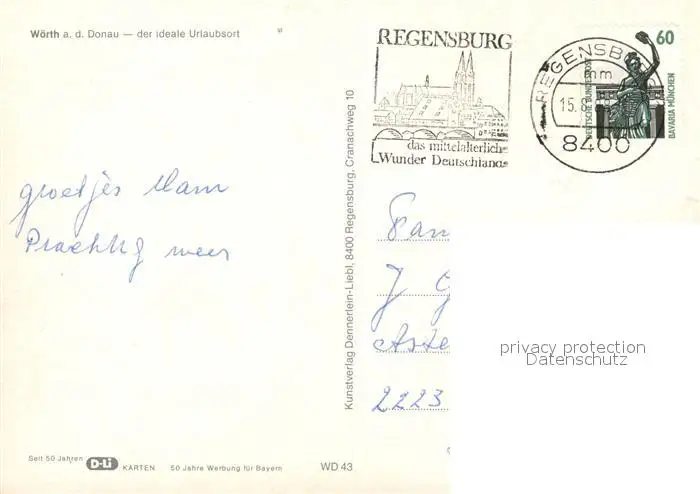 Wörth a. d. Donau — der ideale Urlaubsort
REGENSBURG
das mittelalterliche
Wunder Deutschlands
REGENSB
mm
15.
8400
60
DEUTSCHE BUNDESPOST
BAVARIA MÜNCHEN
groetjes Mam
Prachtig weer
Kunstverlag Dennerlein-Liebl, 8400 Regensburg, Cranachweg 10
Fam
J G
Aste
2223
privacy protection
Datenschutz
Seit 50 Jahren
D-Li KARTEN 50 Jahre Werbung für Bayern
WD 43